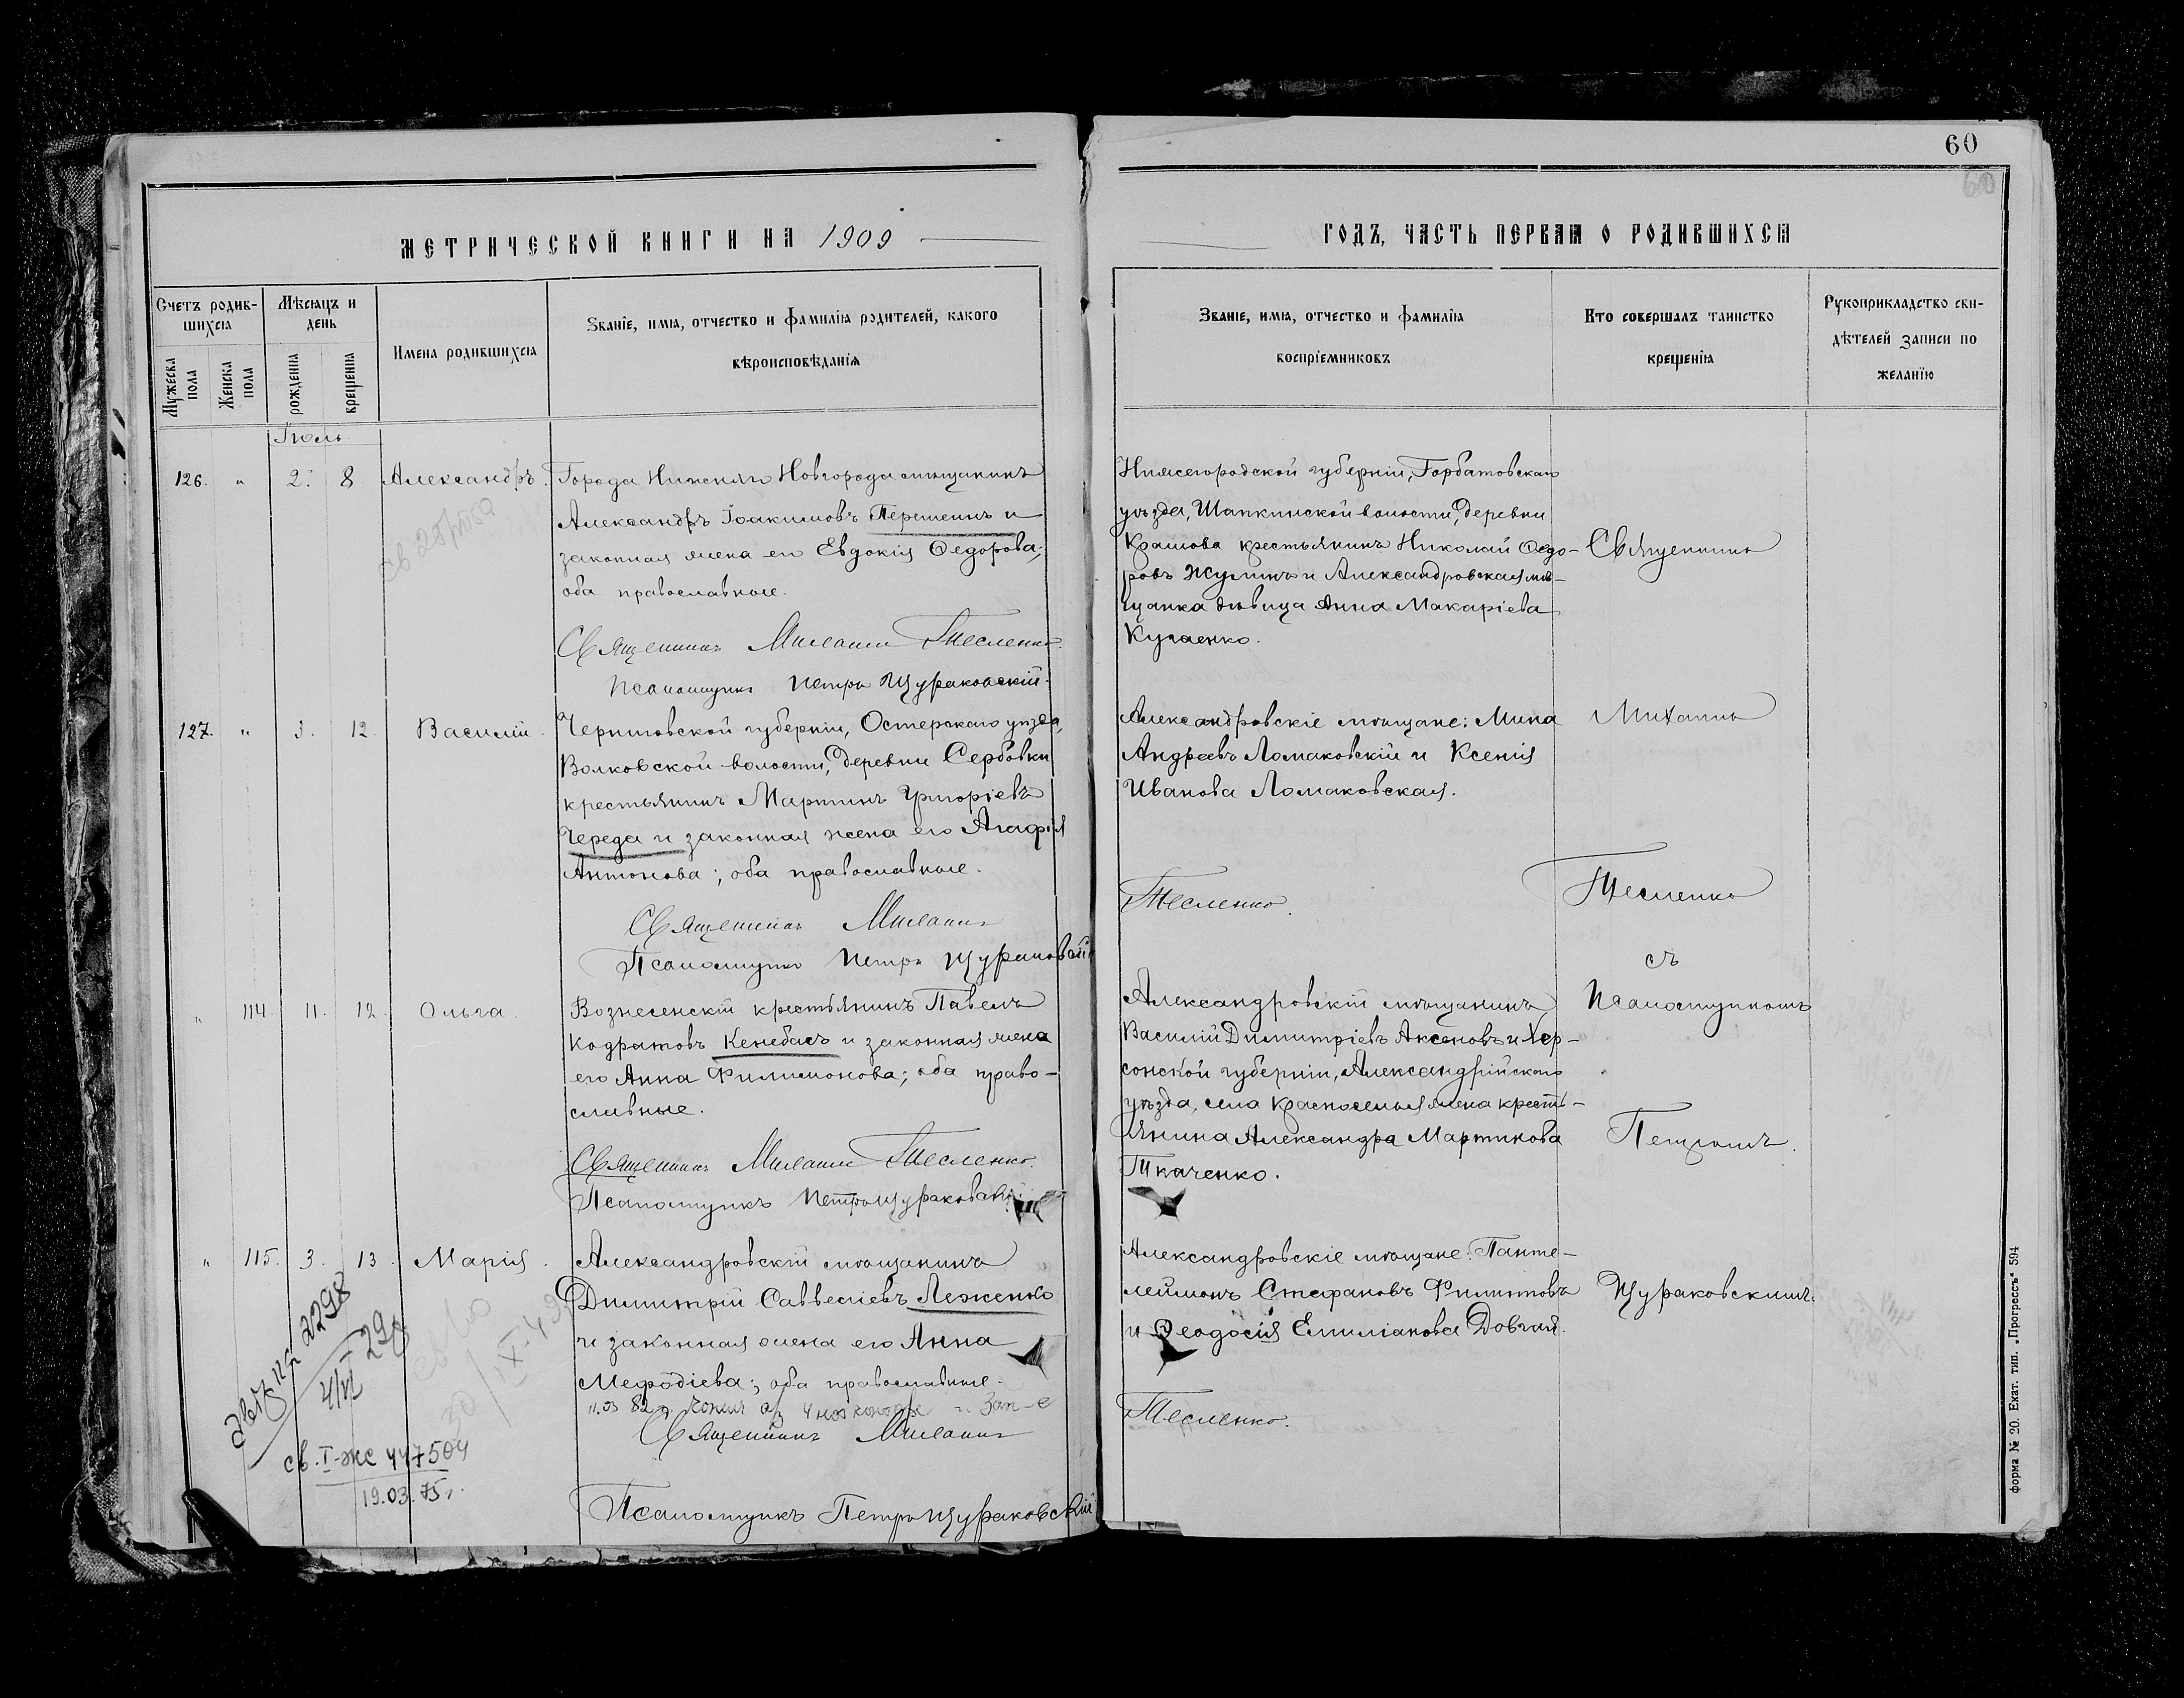 60
60
МЕТРИЧЕСКОЙ КНИГИ НА 1909
ГОДЪ, ЧАСТЬ ПЕРВАЯ О РОДИВШИХСЯ
Счетъ родив-
шихся
Мужеска пола
Женска пола
Мѣсяцъ и
день
рожденія
крещенія
Имена родившихся
Званіе, имя, отчество и фамилія родителей, какого
вѣроисповѣданія
Званіе, имя, отчество и фамилія
воспріемниковъ
Кто совершалъ таинство
крещенія
Рукоприкладство сви-
дѣтелей записи по
желанію
Іюль.
126. " 2. 8 Александръ.
Города Нижняго Новгорода мѣщанинъ
Александръ Іоакимовъ Перешеинъ и
законная жена его Евдокія Ѳедорова;
оба православные.
Священникъ Михаилъ Тесленко.
Псаломщикъ Петръ Щураковскій.
Нижегородской губерніи, Горбатовскаго
уѣзда, Шапкинской волости, деревни
крестьянинъ Николай Ѳедо-
ровъ Жулинъ и Александровская мѣ-
щанка дѣвица Анна Макаріева
Священникъ
127. " 3. 12 Василій.
Черниговской губерніи, Остерскаго уѣзда,
Волковской волости, деревни Сербовки
крестьянинъ Мартинъ Григоріевъ
Череда и законная жена его Агафія
Антонова; оба православные.
Священникъ Михаилъ
Псаломщикъ Петръ Щураковскій
Александровскіе мѣщане: Мина
Андреевъ Ломаковскій и Ксенія
Иванова Ломаковская.
Тесленко.
Михаилъ
Тесленко
съ
" 114. 11. 12. Ольга.
Вознесенскій крестьянинъ Павелъ
Кодратовъ Кенебасъ и законная жена
его Анна Филимонова; оба право-
славные.
Священникъ Михаилъ Тесленко.
Псаломщикъ Петръ Щураковскій
Александровскій мѣщанинъ
Василій Димитріевъ Аксеновъ и Хер-
сонской губерніи, Александрійскаго
уѣзда, села Красноселья жена кресть-
янина Александра Мартинова
Ткаченко.
Псаломщикомъ
Петромъ.
" 115. 3. 13. Марія.
Александровскій мѣщанинъ
Димитрій Саввегіевъ Леженко
и законная жена его Анна
Мефодіева; оба православные.
11.03 82
Священникъ Михаилъ
Псаломщикъ Петръ Щураковскій
Александровскіе мѣщане: Панте-
леимонъ Стефановъ Филиповъ
и Ѳеодосія Емиліанова Довгая.
Тесленко.
Щураковскимъ.
2298
св. I-же 447504
19.03.75 г.
форма № 20. Екат. тип. „Прогрессъ" 594